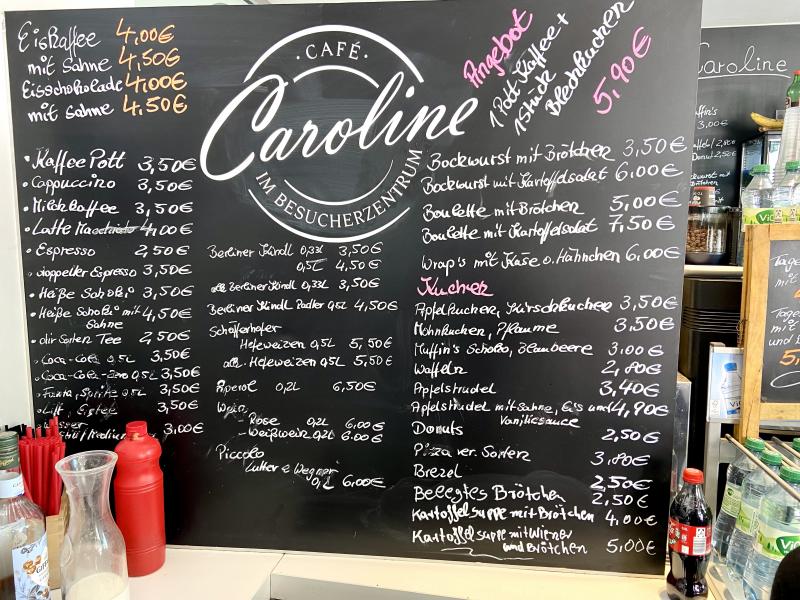 Eiskaffee 4,00€
mit Sahne 4,50€
Eisschokolade 4,00€
mit Sahne 4,50€
• Kaffee Pott 3,50€
• Cappuccino 3,50€
• Milchkaffee 3,50€
• Latte Macchiato 4,00€
• Espresso 2,50€
• doppelter Espresso 3,50€
• Heiße Schoko 3,50€
• Heiße Schoko mit 4,50€
Sahne
• dir Sorten Tee 2,50€
• Coca-Cola 0,5L 3,50€
• Coca-Cola-Zero 0,5L 3,50€
• Fanta, Sprite 0,5L 3,50€
• Lift, 3,50€
• Wasser 3,00€
Still/Medium
CAFÉ
Caroline
IM BESUCHERZENTRUM
Berliner Kindl 0,33L 3,50€
0,5L 4,50€
alk. Berliner Kindl 0,33L 3,50€
Berliner Kindl Radler 0,5L 4,50€
Schöfferhofer
Hefeweizen 0,5L 5,50€
alk. Hefeweizen 0,5L 5,50€
Aperol 0,2L 6,50€
Wein
Rose 0,2L 6,00€
Weißwein 0,2L 6.00€
Piccolo
Lutter & Wegner
0,2L 6,00€
Angebot
1 Pott Kaffee +
1 Stück
Blechkuchen
5,90€
Bockwurst mit Brötchen 3,50€
Bockwurst mit Kartoffelsalat 6.00€
Boulette mit Brötchen 5,00€
Boulette mit Kartoffelsalat 7,50€
Wrap's mit Käse o. Hähnchen 6,00€
Kuchen
Apfelkuchen, Kirschkuchen 3,50€
Mohnkuchen, Pflaume 3,50€
Muffin's Schoko, Blaubeere 3,00€
Waffeln 2,80€
Apfelstrudel 3,40€
Apfelstrudel mit Sahne, Eis und 4,90€
Vanillesauce
Donuts 2,50€
Pizza ver. Sorten 3,80€
Brezel 2,50€
Belegtes Brötchen 2,50€
Kartoffelsuppe mit Brötchen 4,00€
Kartoffelsuppe mit Wiener
und Brötchen 5,00€
Caroline
3,00€
Donut 2,50€